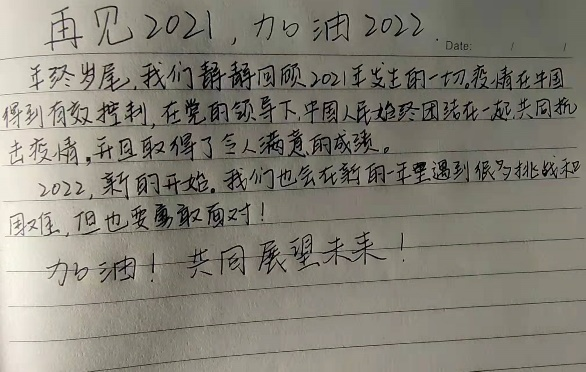 再见2021，加油2022.
Date: / /
年终岁尾，我们静静回顾2021年发生的一切，疫情在中国
得到有效控制，在党的领导下，中国人民始终团结在一起，共同抗
击疫情，并且取得了令人满意的成绩。
2022，新的开始。我们也会在新的一年里遇到很多挑战和
困难，但也要勇敢面对！
加油！共同展望未来！